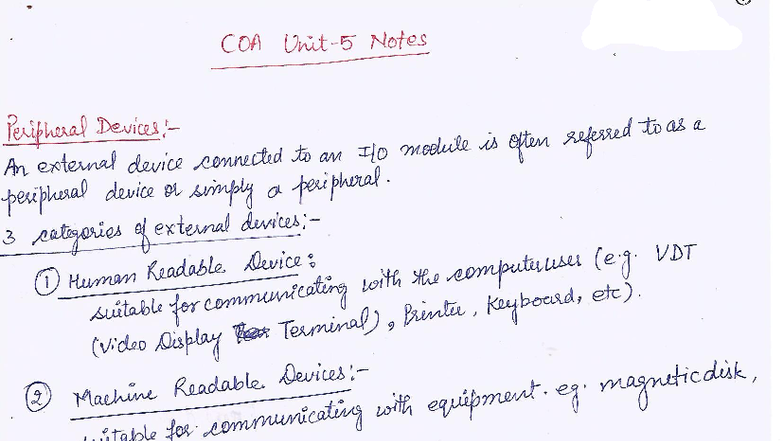 COA Unit-5 Notes
Peripheral Devices:-
An external device connected to an I/O module is often referred to as a
peripheral device or simply a peripheral.
3 categories of external devices:-
① Human Readable Device:
suitable for communicating with the computer user (e.g. VDT
(Video Display Terminal), Printer, Keyboard, etc).
② Machine Readable Devices:-
suitable for communicating with equipment. eg. magnetic disk,